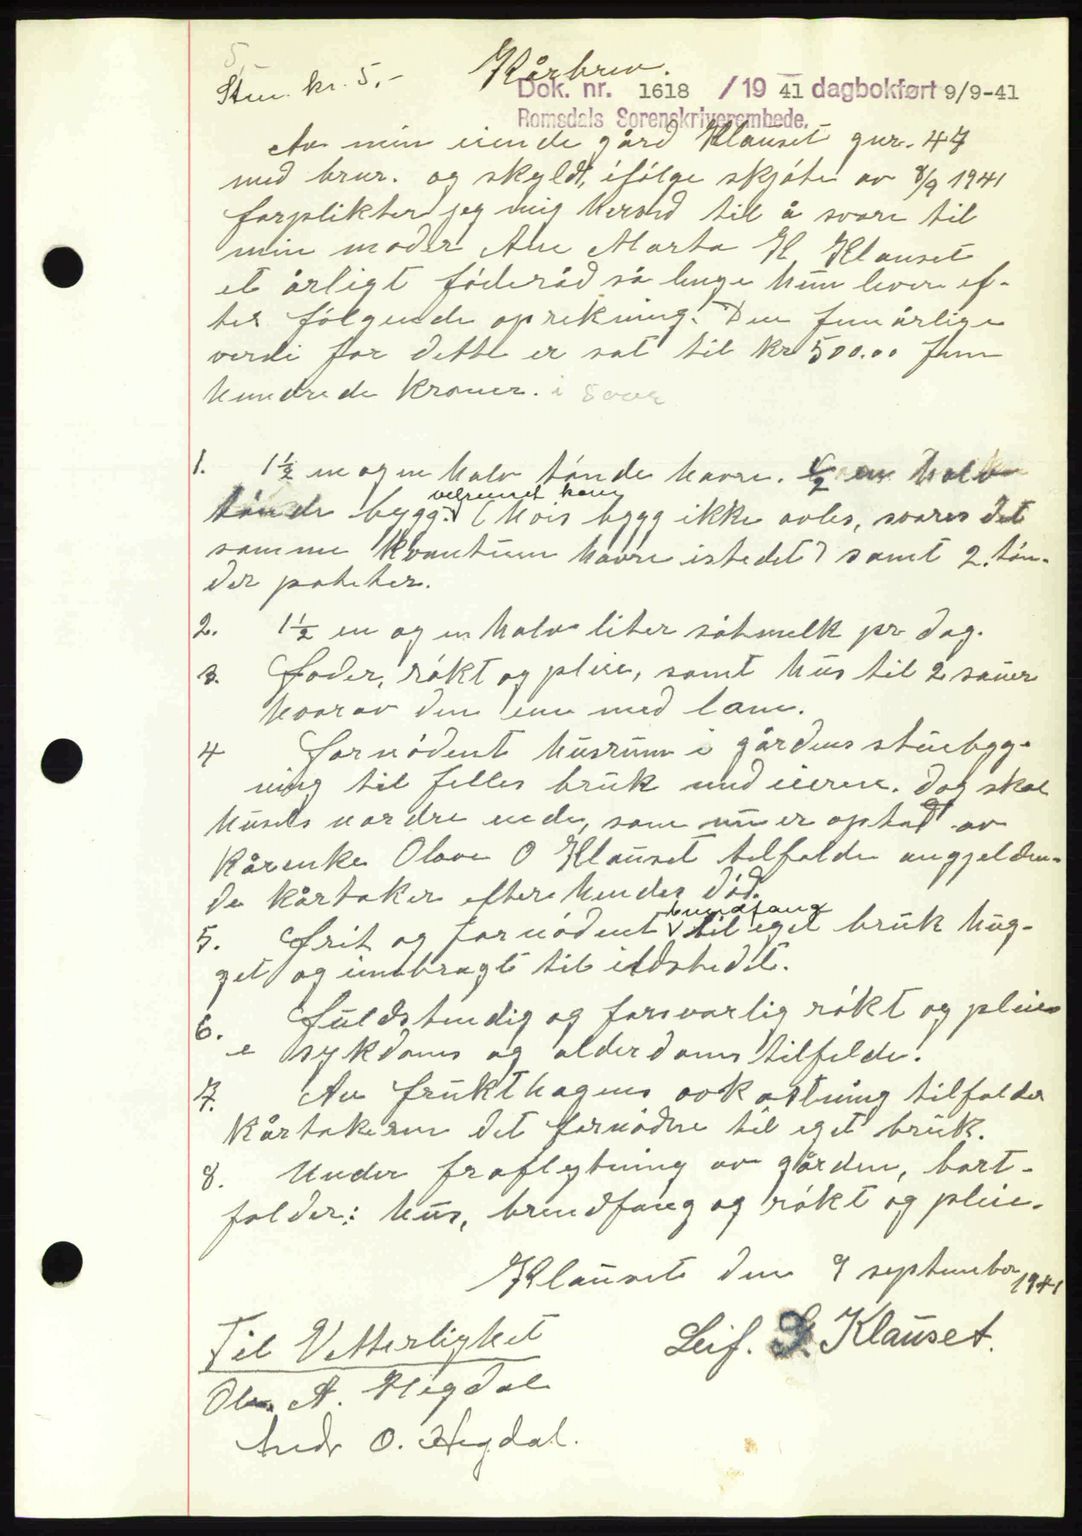 5,
Kårbrev.
Stm. kr. 5.-
Dok. nr. 1618 / 19 41 dagbokført 9/9-41
Romsdals Sorenskriverembede.
Av min eiende gård Klauset gnr. 47
med brnr. og skyld, ifølge skjøte av 8/9 1941
forplikter jeg mig herved til å svare til
min moder Ane Marta H. Klauset
et årligt føderåd så lenge hun lever ef-
ter følgende oprekning. Den femårlige
verdi for dette er sat til kr 500.00 fem
hundrede kroner. i 5 aar
1. 1½ en og en halv tønde havre. ½ en halv
tønde bygg. (Hvis bygg ikke avles, svares det
velrenset korn
samme kvantum havre istedet) samt 2 tøn-
der poteter.
2. 1½ en og en halv liter søtmelk pr dag.
3. Foder, røkt og pleie, samt hus til 2 sauer
hvorav den ene med lam.
4 Fornødent husrum i gårdens stuebyg-
ning til felles bruk med eieren. Dog skal
husets nordre ende, som nu er optat av
kårenke Olave O Klauset tilfalde angjelden-
de kårtaker efter hendes død.
5. Frit og fornødent brendfang til eget bruk hug-
get og innbragt til ildstedet.
6. Fuldstendig og forsvarlig røkt og pleie
i sykdoms og alderdoms tilfelde.
7. Av frukthagens avkastning tilfalder
kårtakeren det fornødne til eget bruk.
8. Under fraflytning av gården, bort-
falder: hus, brendfang og røkt og pleie.
Klauset den 9 september 1941
Leif. S. Klauset.
Til Vitterlighet
Ola A. Hegdal
Andr O. Hegdal.